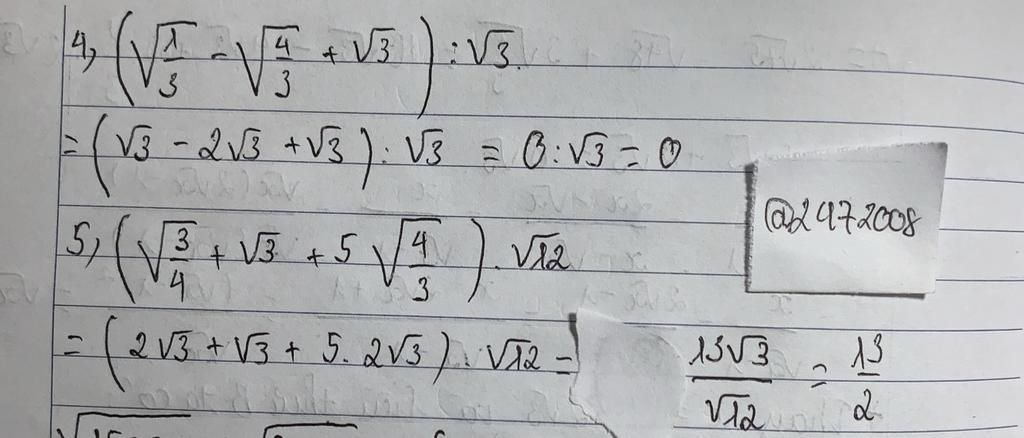 4, (√(1/3) - √(4/3) + √3) : √3.
= (√3 - 2√3 + √3) : √3 = 0 : √3 = 0
@2472008
5, (√(3/4) + √3 + 5 √(4/3)) . √12
= (2√3 + √3 + 5. 2√3) : √12 = 13√3/√12 = 13/2